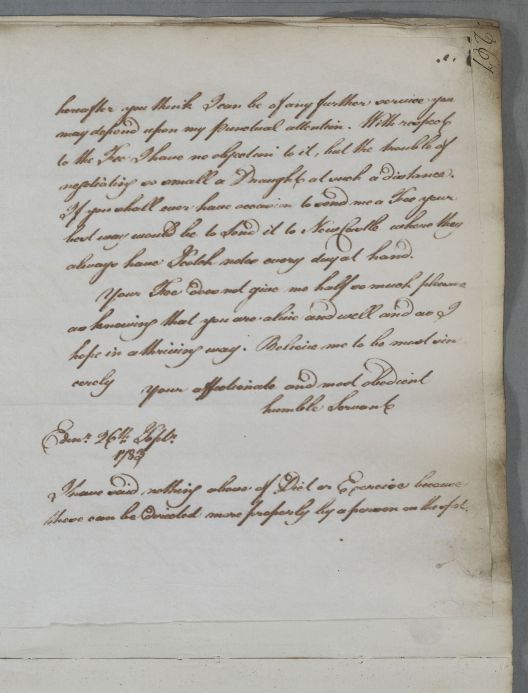 hereafter you think I can be of any further service you
may depend upon my punctual attention. With respect
to the Fee I have no objection to it, but the trouble of
negotiating so small a Draught at such a distance.
If you shall ever have occasion to send me a Fee your
best way would be to send it to NewCastle where they
always have Scotch notes every day at hand.
Your Fee does not give me half so much pleasure
as knowing that you are alive and well and as I
hope in a thriving way. Believe me to be most sin
cerely
Your affectionate and most obedient
humble Servant
Edinr. 26th. Septr.
1783
I have said nothing above of Diet or Exercise because
these can be directed more properly by a person on the spot.